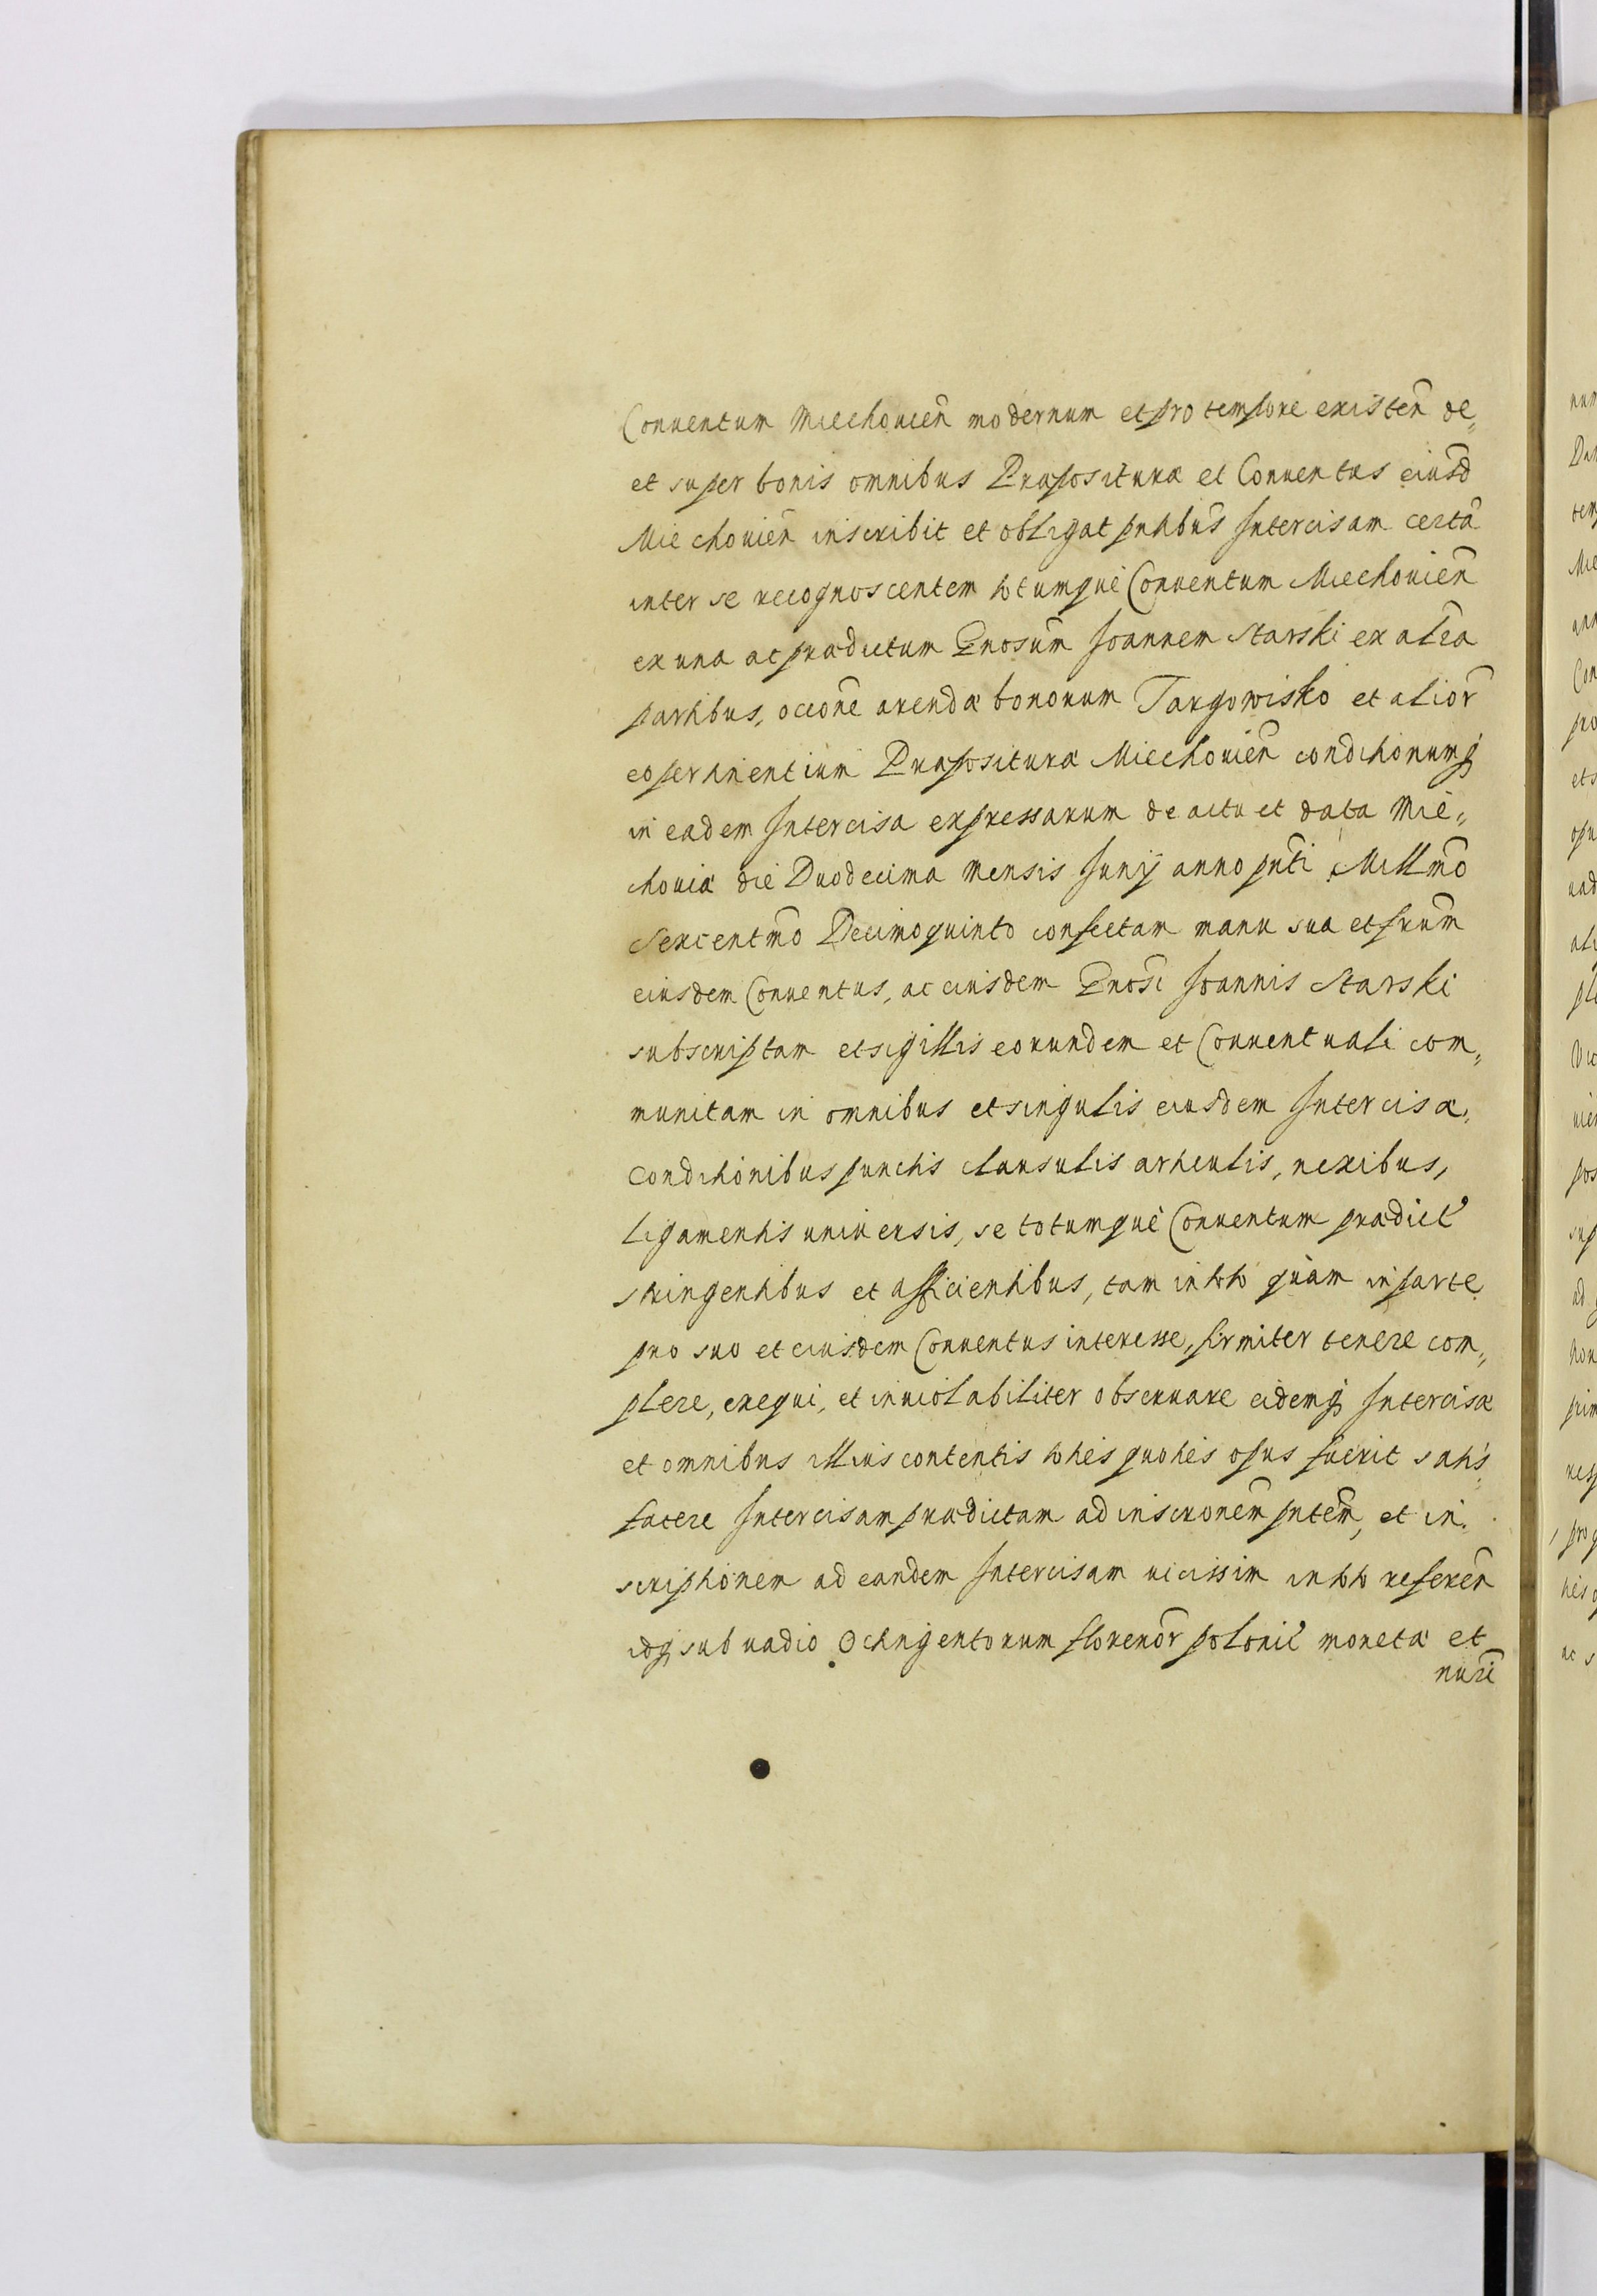 Conuentum Miechouien̄ modernum et pro tempore existen̄ de„
et super bonis omnibus Præposituræ et Conuentus eiusd̄
Miechouien̄ inscribit et obligat pntibus Intercisam certā
inter se recognoscentem totumque Conuentum Miechouien̄
ex una ac prædictum Gnosūm Joannem Starski ex altēa
partibus, occōne arendæ bonorum Targowisko et alior̄
eo pertinentium Præposituræ Miechouien̄ conditionumq̨
in eadem Intercisa expressarum de actu et data Mie„
chouiæ die Duodecima Mensis Junij anno pn̄ti Millm̄o
Sexcentm̄o Decimoquinto confectam manu sua et frūm
eiusdem Conuentus, ac eiusdem Gnosī Joannis Starski
subscriptam et sigillis eorundem et Conuentuali com„
munitam in omnibus et singulis eiusdem Intercisæ
conditionibus punctis clausulis articulis, nexibus,
ligamentis uniuersis, se totumque Conuentum prædict
stringentibus et afficientibus, tam in toto quam in parte
pro suo et eiusdem Conuentus interesse, firmiter tenere com„
plere, exequi, et inuiolabiliter obseruare eidemq̨ Intercisæ
et omnibus illius contentis toties quoties opus fuerit satis
facere Intercisam prædictam ad inscrōnem pn̄tem, et in
scriptionem ad eandem Intercisam uicissim in toto referen̄
idq̨ sub uadio Octingentorum florenor̄ polonic monetæ et
nur̄i
num
Dan
tem
Mie
ann
Con
pro
et s
opu
uad
ali
ple
Vic
uien
pos
sup
ad
non
prim
resp
pro q
ties q
ac s